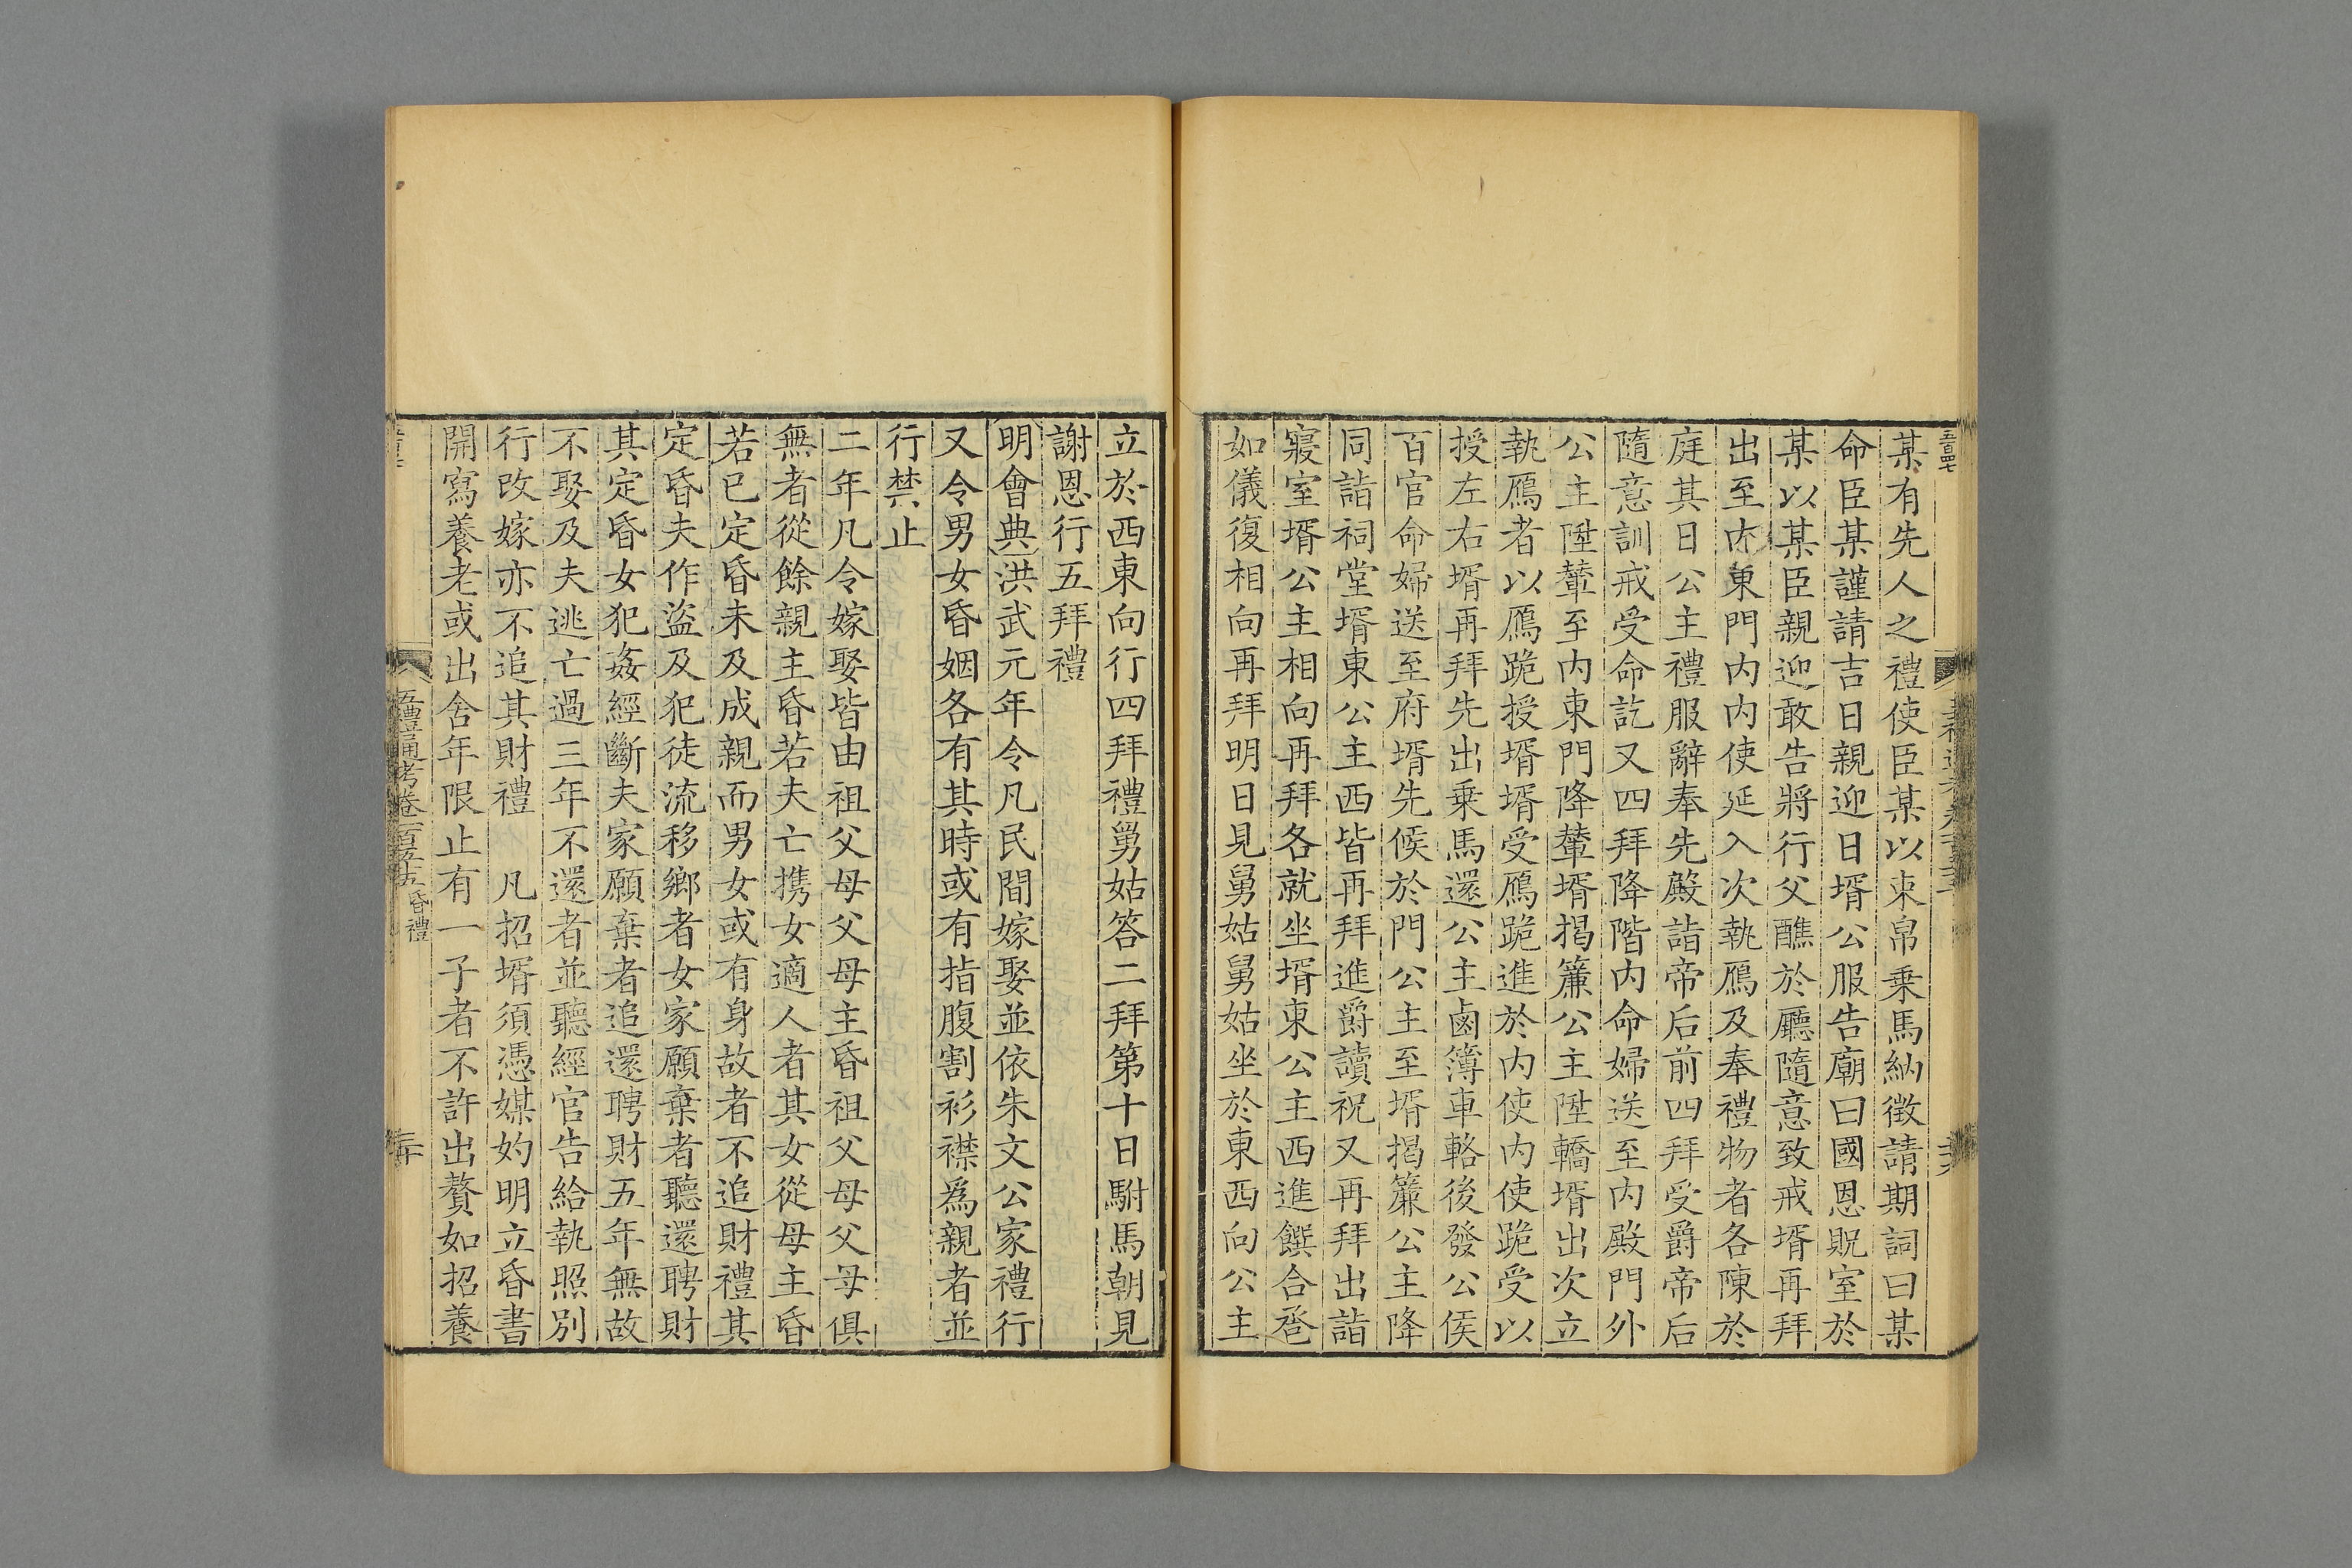 某有先人之禮使臣某以束帛乗馬納徵請期詞曰某
命臣某謹請吉日親迎日壻公服告廟曰國恩貺室於
某以某臣親迎敢告將行父醮於廳隨意致戒壻再拜
出至内東門内内使延入次執鴈及奉禮物者各陳於
庭其日公主禮服辭奉先殿詣帝后前四拜受爵帝后
隨意訓戒受命訖又四拜降階内命婦送至内殿門外
公主陞輦至内東門降輦壻揭簾公主陞轎壻出次立
執鴈者以鴈跪授壻壻受鴈跪進於内使内使跪受以
授左右壻再拜先出乗馬還公主鹵簿車輅後發公侯
百官命婦送至府壻先候於門公主至壻揭簾公主降
同詣祠堂壻東公主西皆再拜進爵讀祝又再拜出詣
寢室壻公主相向再拜各就坐壻東公主西進饌合巹
如儀復相向再拜明日見舅姑舅姑坐於東西向公主
立於西東向行四拜禮舅姑答二拜第十日駙馬朝見
謝恩行五拜禮
明會典洪武元年令凡民間嫁娶並依朱文公家禮行
又令男女昏姻各有其時或有指腹割衫襟爲親者並
行禁止
二年凡令嫁娶皆由祖父母父母主昏祖父母父母俱
無者從餘親主昏若夫亡携女適人者其女從母主昏
若已定昏未及成親而男女或有身故者不追財禮其
定昏夫作盜及犯徒流移鄉者女家願棄者聽還聘財
其定昏女犯姦經斷夫家願棄者追還聘財五年無故
不娶及夫逃亡過三年不還者並聽經官告給執照別
行改嫁亦不追其財禮　凡招壻須憑媒妁明立昏書
開寫養老或出舍年限止有一子者不許出贅如招養
五禮通考卷一百五十五 昏禮
三十